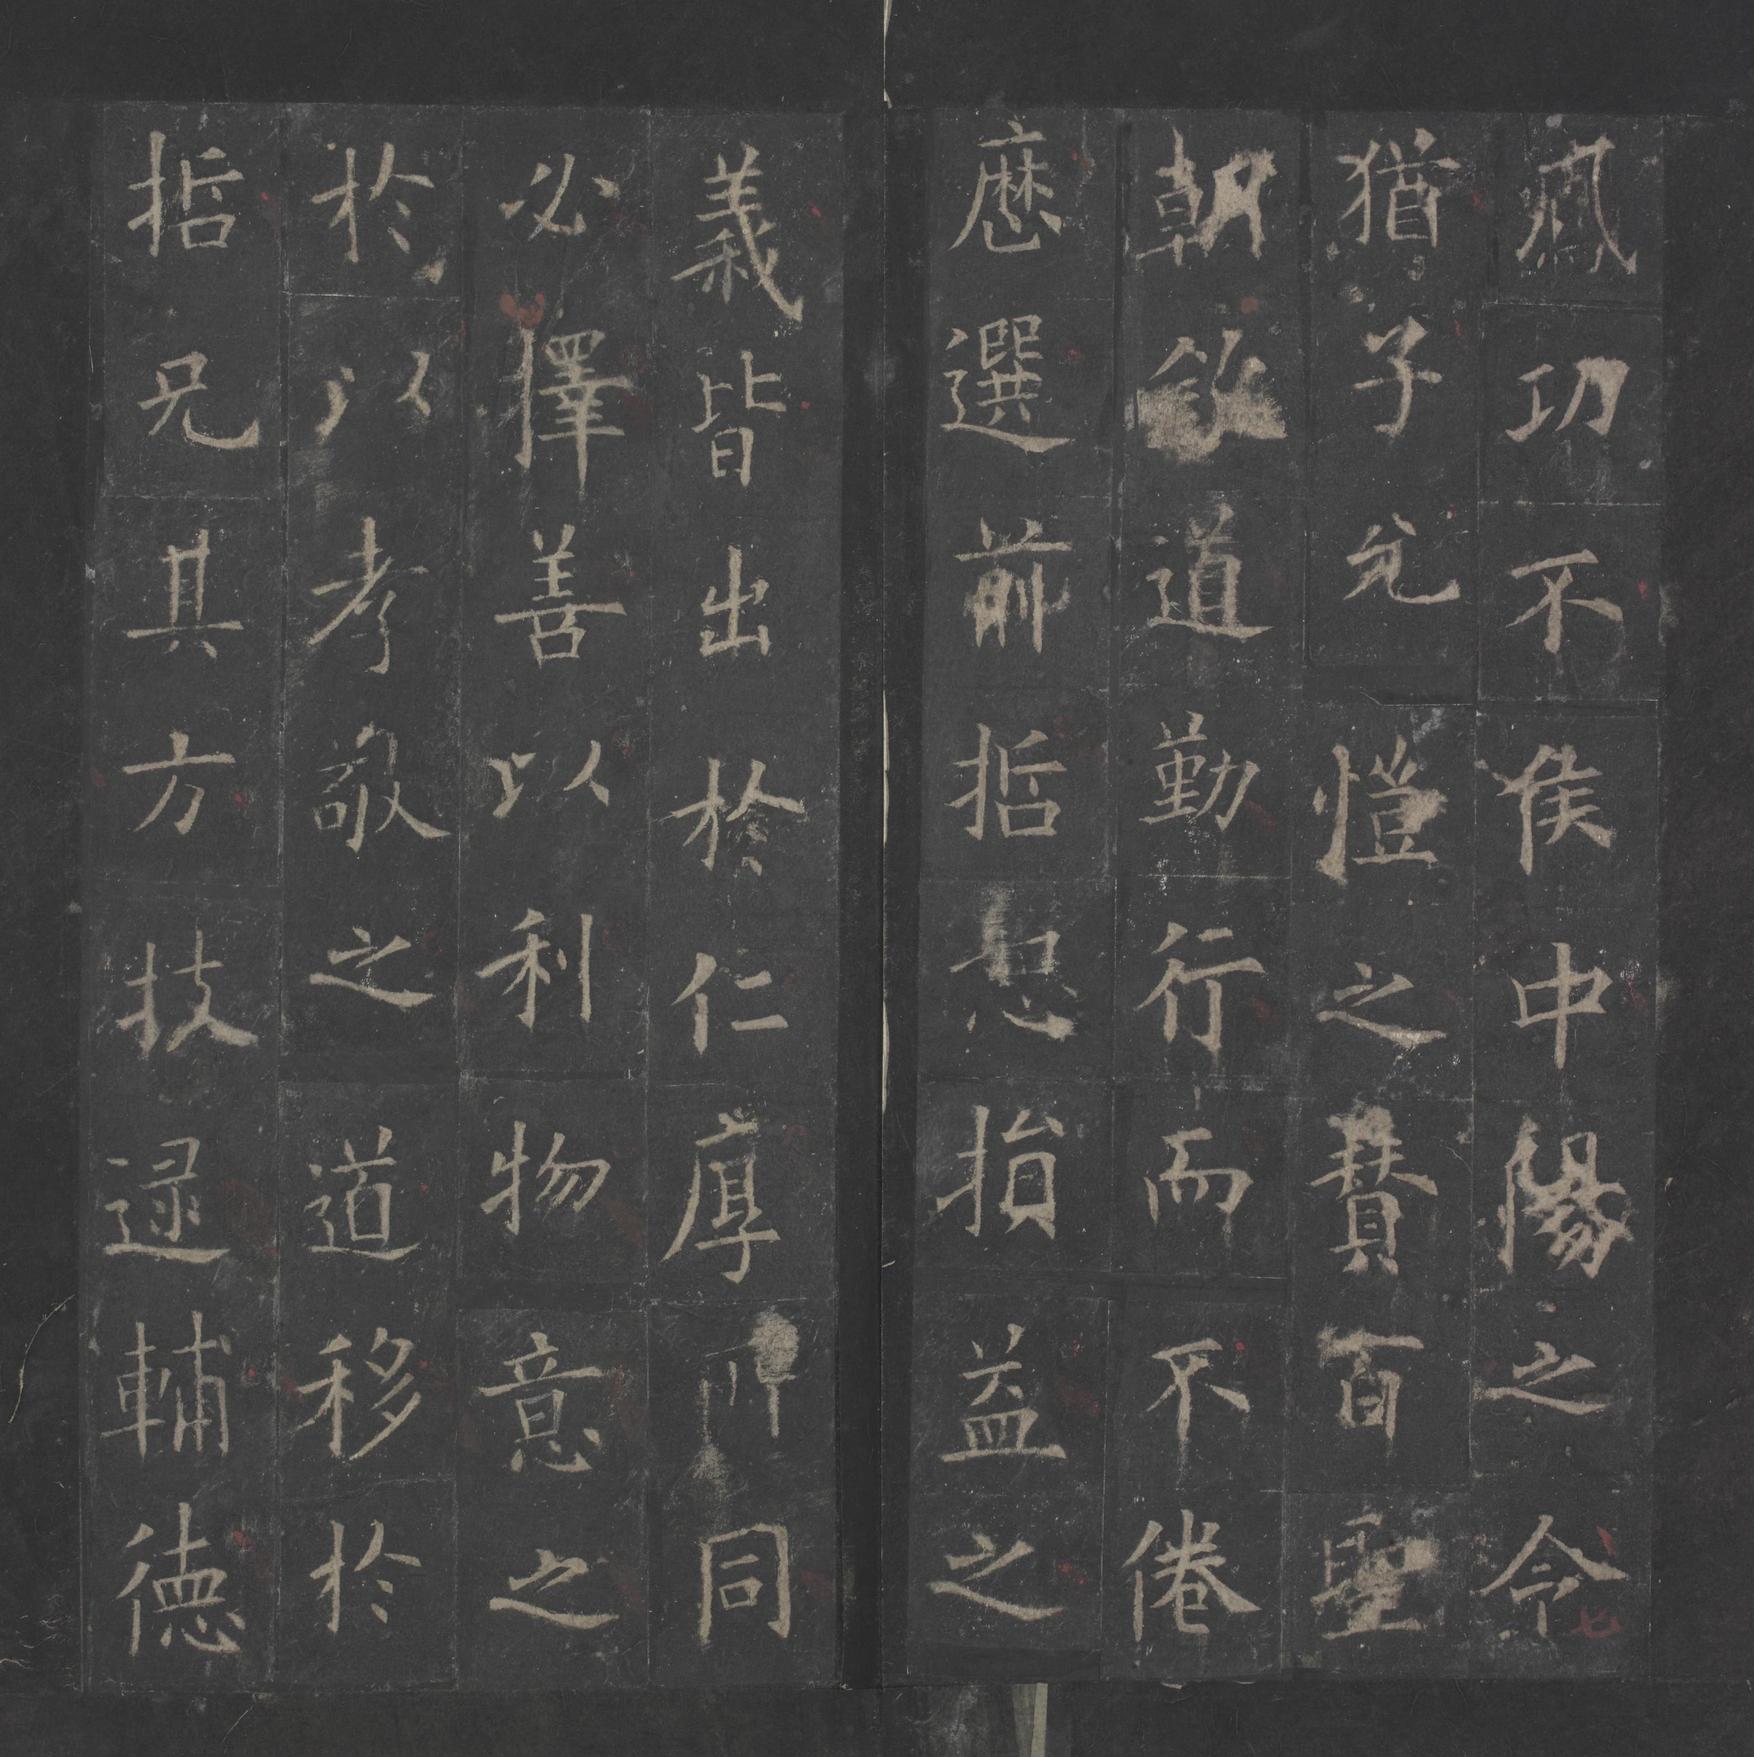 鳳功不侯中陽之令
猶子兊愷之賛百聖
朝道勤行而不倦
歷選前哲思損益之
義皆出於仁厚同
必擇善以利物意之
於以孝敬之道移於
哲兄其方技逯輔德